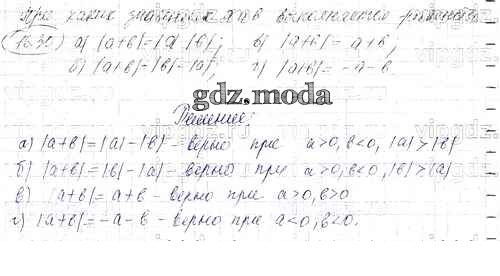 При каких значениях а и в выполняется равенство
16.30) а) |a+в|=|a|-|в|; в) |a+в|= a+в,
б) |a+в|=|в|-|a|; г) |a+в|= -a-в
gdz.moda
Решение:
а) |a+в|=|a|-|в| - верно при a>0, в<0, |a|>|в|
б) |a+в|=|в|-|a| - верно при a>0, в<0, |в|>|a|
в) |a+в|= a+в - верно при a>0, в>0
г) |a+в|= -a-в - верно при a<0, в<0.